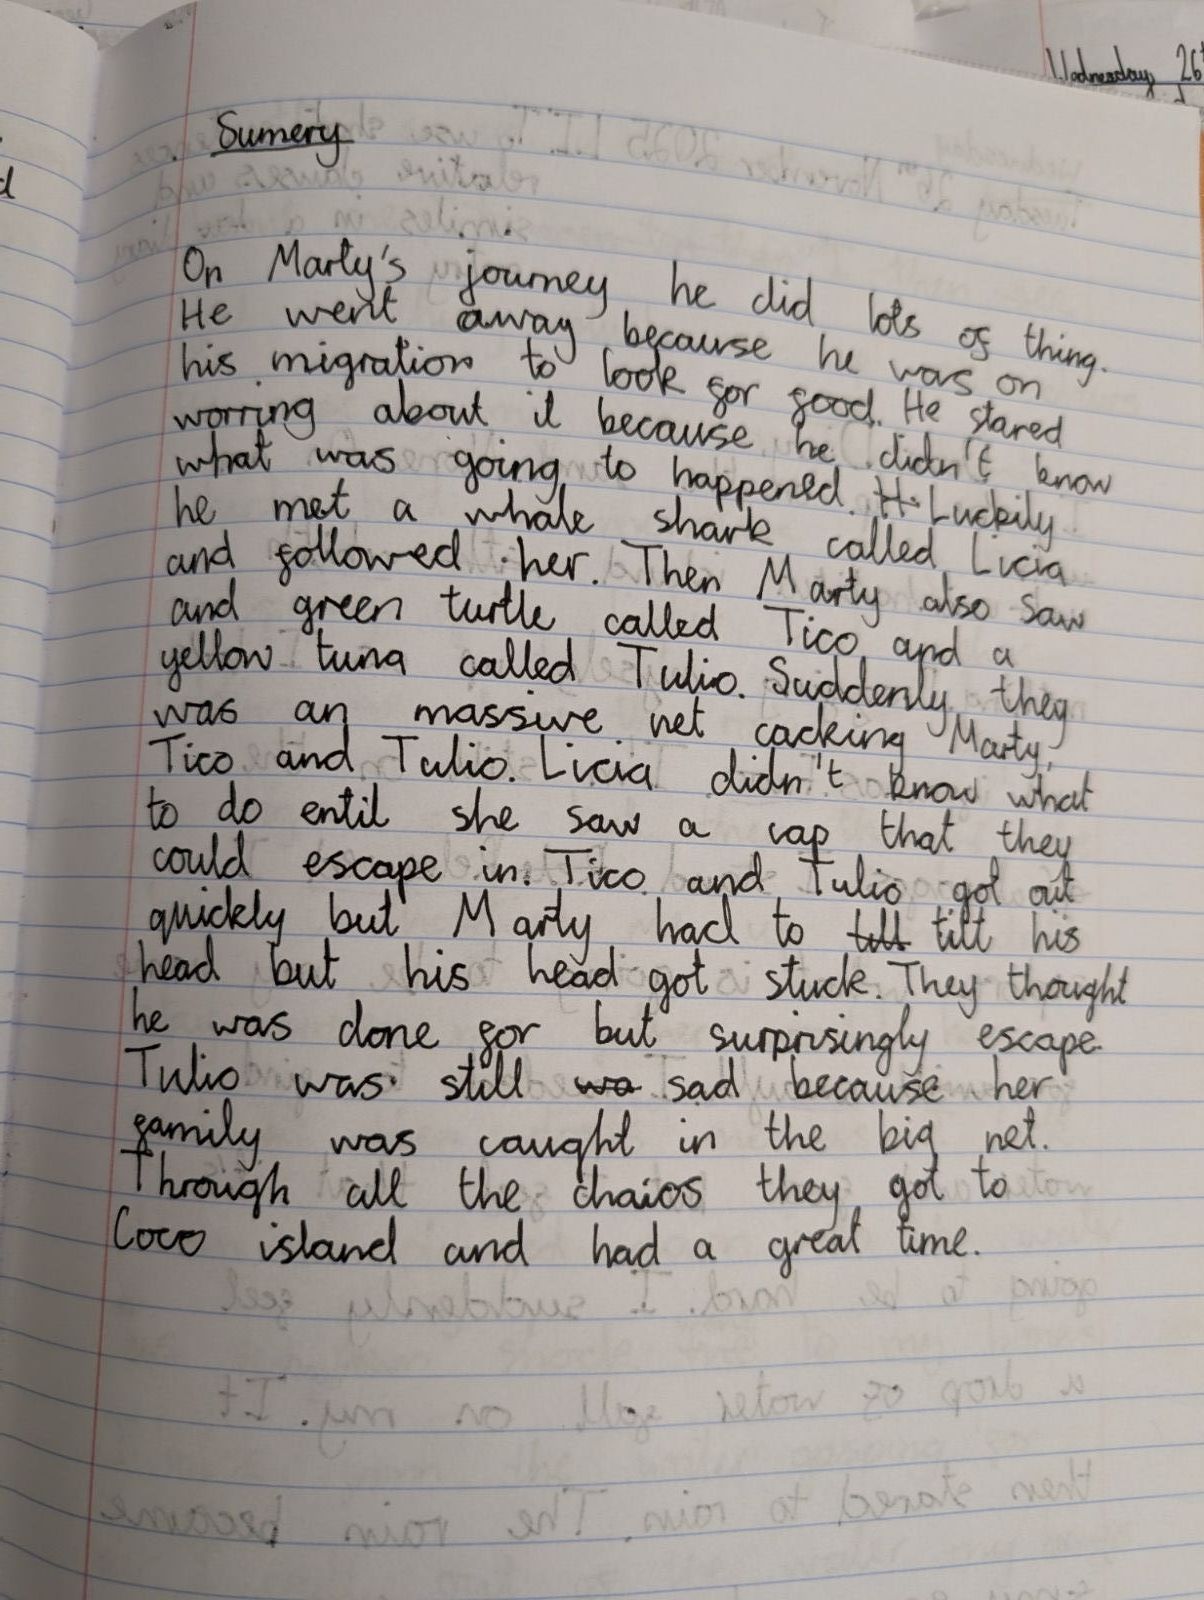 Wednesday 26
Sumery
On Marty's journey he did lots of thing.
He went away because he was on
his migration to look for food. He stared
worring about it because he didn't know
what was going to happened. H Luckily
he met a whale shark called Licia
and followed her. Then Marty also saw
and green turtle called Tico and a
yellow tuna called Tulio. Suddenly they
was an massive net cacking Marty,
Tico and Tulio. Licia didn't know what
to do entil she saw a cap that they
could escape in. Tico and Tulio got out
quickly but Marty had to till tilt his
head but his head got stuck. They thought
he was done for but surprisingly escape.
Tulio was still wa sad because her
family was caught in the big net.
Through all the chaios they got to
Coco island and had a great time.